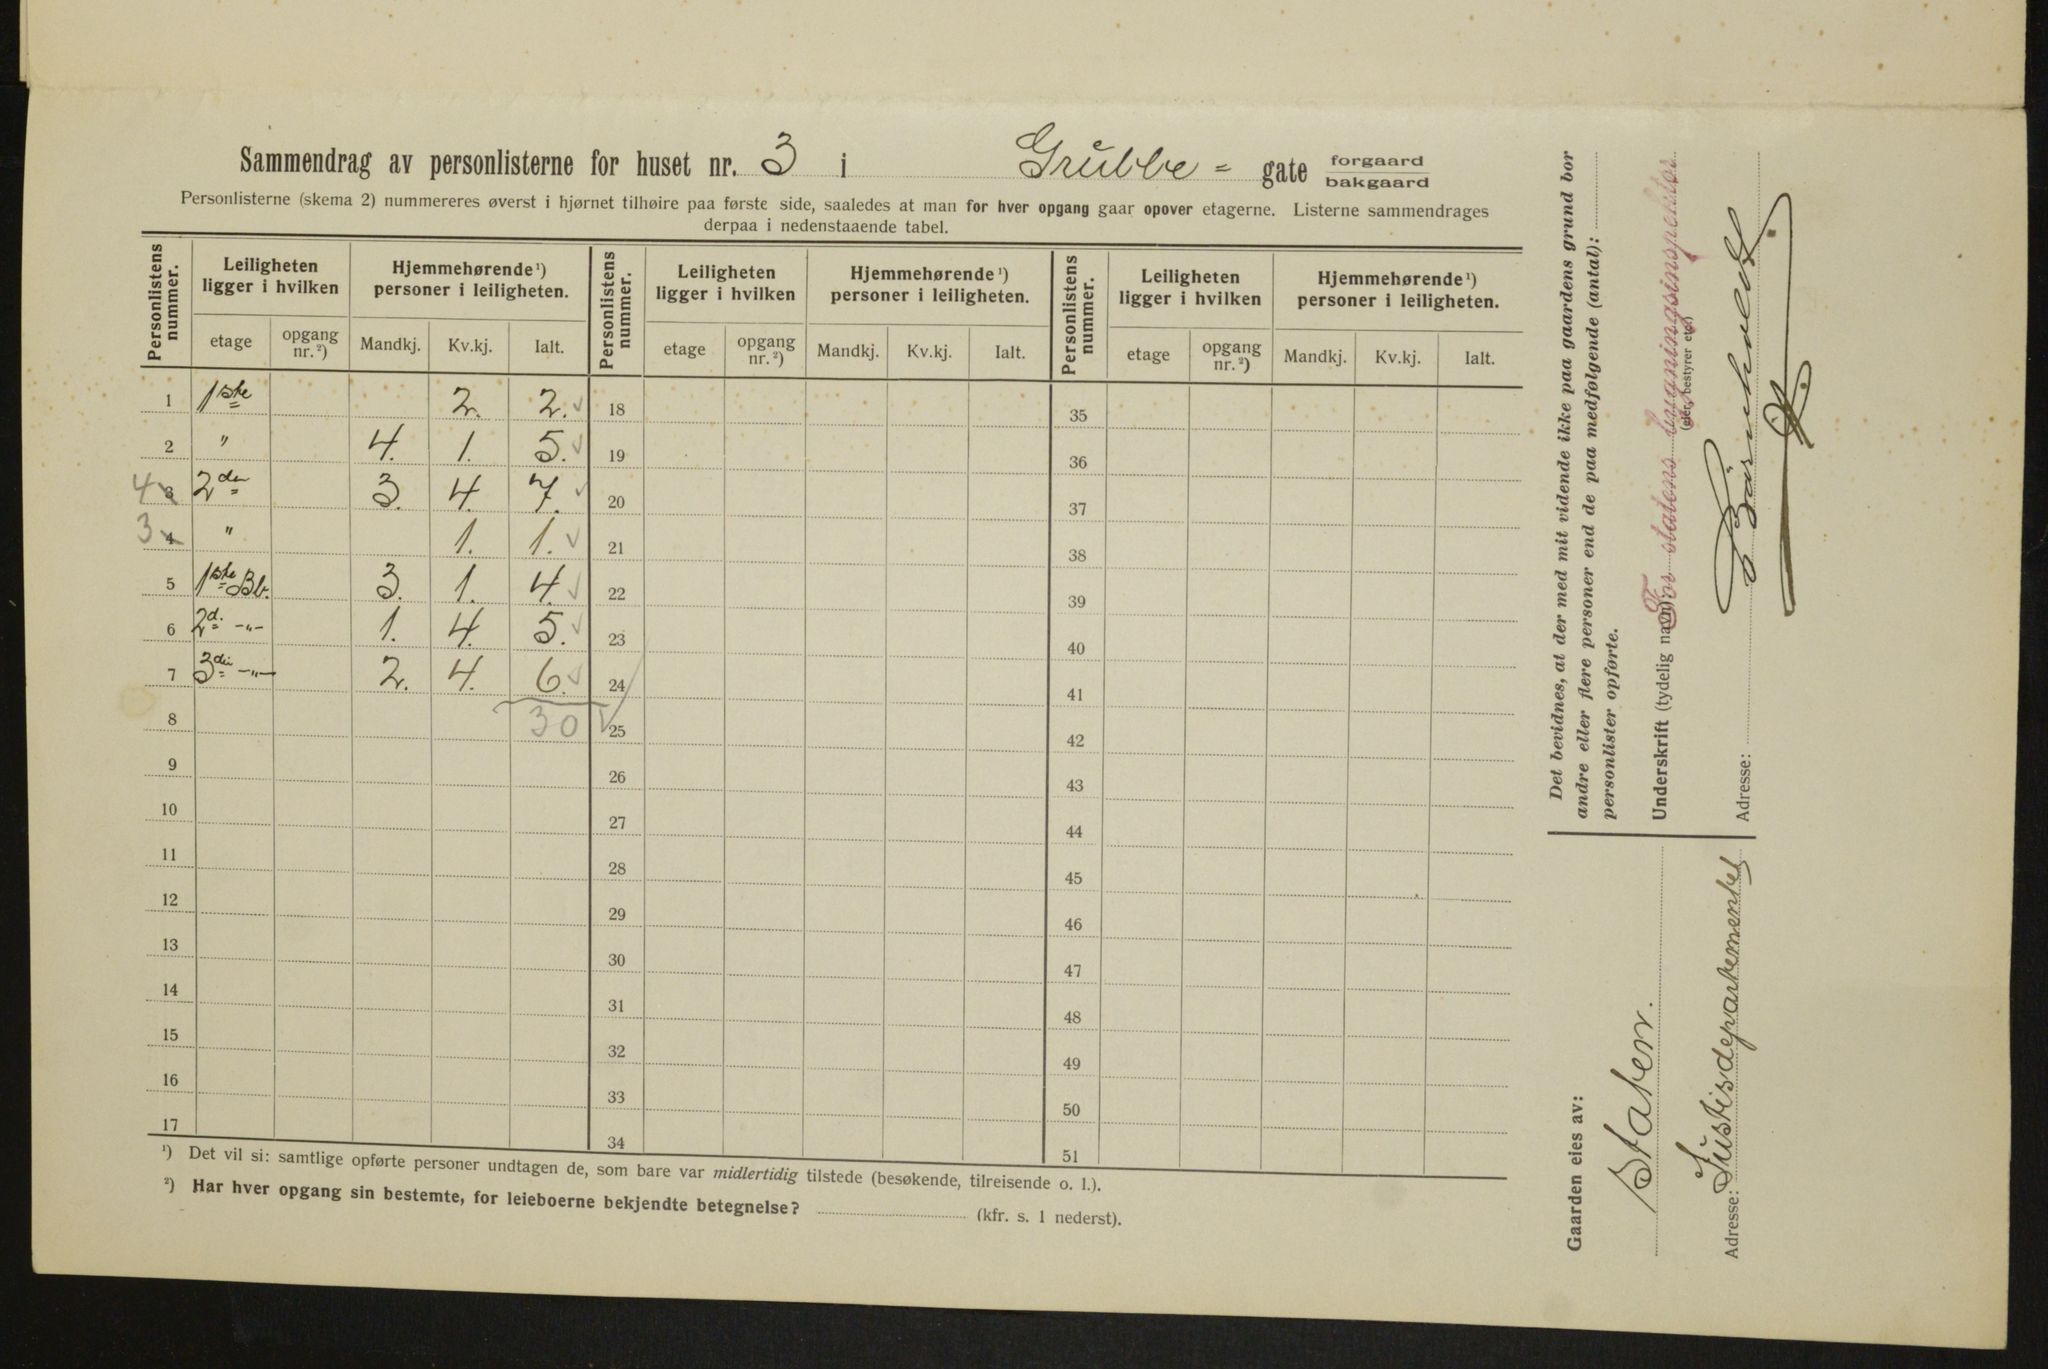 Sammendrag av personlisterne for huset nr. 3 i Grubbe = gate forgaard
bakgaard
Personlisterne (skema 2) nummereres øverst i hjørnet tilhøire paa første side, saaledes at man for hver opgang gaar opover etagerne. Listerne sammendrages
derpaa i nedenstaaende tabel.
Personlistens nummer. Leiligheten ligger i hvilken Hjemmehørende ¹) personer i leiligheten. Personlistens nummer. Leiligheten ligger i hvilken Hjemmehørende ¹) personer i leiligheten. Personlistens nummer. Leiligheten ligger i hvilken Hjemmehørende ¹) personer i leiligheten.
etage opgang nr. ²) Mandkj. Kv.kj. Ialt. etage opgang nr. ²) Mandkj. Kv.kj. Ialt. etage opgang nr. ²) Mandkj. Kv.kj. Ialt.
1 1ste 2. 2. 18 35
2 " 4. 1. 5. 19 36
4 3 2den 3. 4. 7. 20 37
3 4 " 1. 1. 21 38
5 1ste Bb. 3. 1. 4. 22 39
6 2d. -"- 1. 4. 5. 23 40
7 3die -"- 2. 4. 6. 24 41
8 30 25 42
9 26 43
10 27 44
11 28 45
12 29 46
13 30 47
14 31 48
15 32 49
16 33 50
17 34 51
¹) Det vil si: samtlige opførte personer undtagen de, som bare var midlertidig tilstede (besøkende, tilreisende o. l.).
²) Har hver opgang sin bestemte, for leieboerne bekjendte betegnelse? (kfr. s. 1 nederst).
Det bevidnes, at der med mit vidende ikke paa gaardens grund bor
andre eller flere personer end de paa medfølgende (antal):
personlister opførte.
Underskrift (tydelig navn): For statens bygningsinspektør
(eier, bestyrer etc.)
Adresse:
Gaarden eies av:
Staten.
Adresse: Justisdepartementet